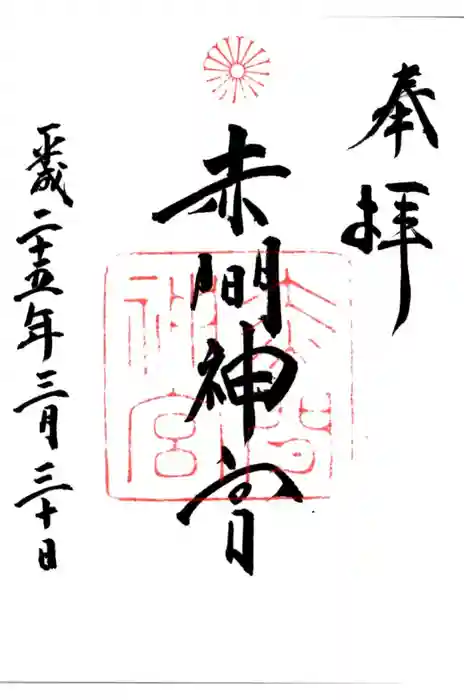 奉拝
赤間神宮
平成二十五年三月三十日
赤間
神宮